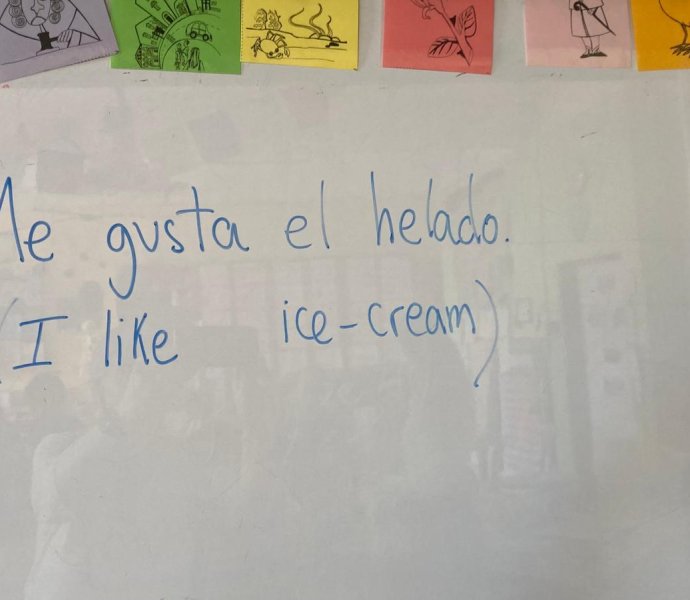 Me gusta el helado.
(I like ice-cream)